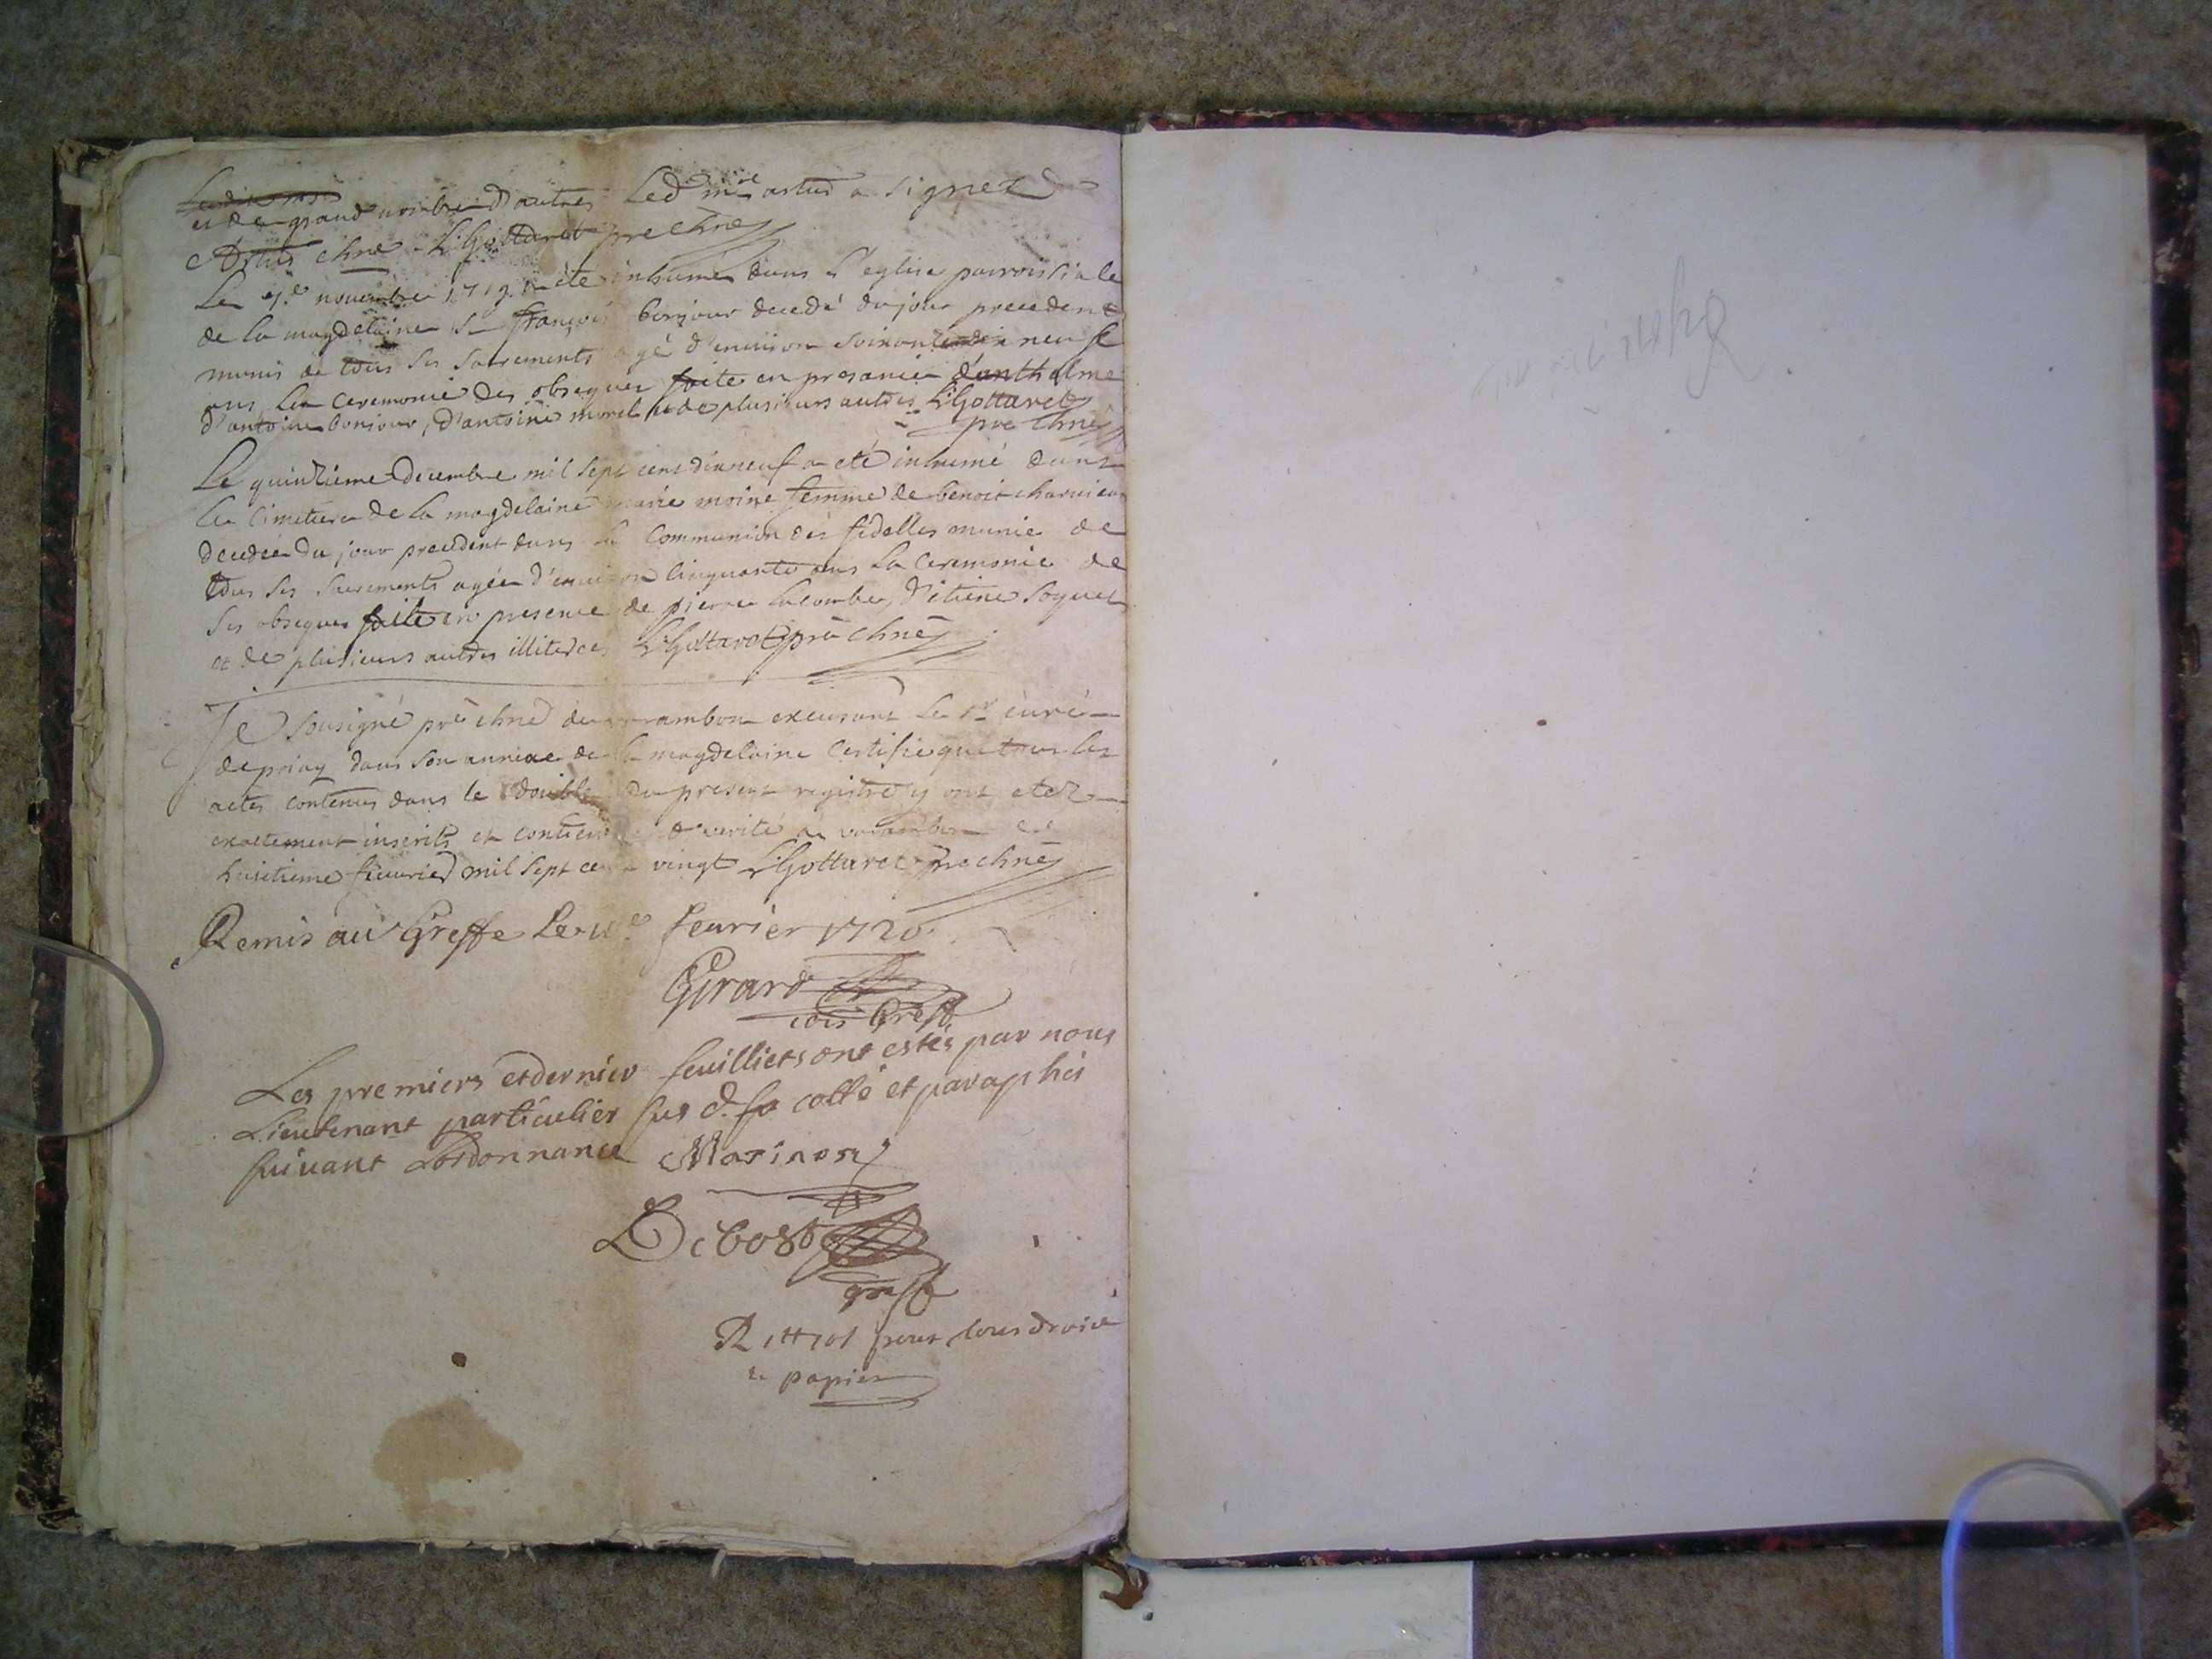 et de grand nombre d'autres Led mre artus a signez
Artus chne L Gottaret pre chne
Le 7e novembre 1719 a ete inhumé dans l'eglise parroissiale
de la magdelaine Sr françois bonjour decedé du jour precedent
munis de tous ses sacrements agé d'environ soixante dix neuf
ans la ceremonie des obseques faite en presance d'anthelme
d'antoine bonjour, d'antoine morel et de plusieurs autres L Gottaret
pre chne
Le quinzieme decembre mil sept cens dixneuf a eté inhumé dans
le cimetiere de la magdelaine marie moine femme de benoit charvieux
decedée du jour precedent dans la Communion des fidelles munie de
tous ses sacrements agée d'environ cinquante ans la ceremonie de
ses obseques faite en presence de pierre lacombe, d'etiene soquet
et de plusieurs autres illiteres L Gottaret pre chne
Je sousigné pre chne de varambon excersant le sr curé
de priay dans son annexe de la magdelaine certifie que tous les
actes contenus dans le double du present registre y ont etez
exactement inscrits et contienent verité a varambon ce
huictieme fevrier mil sept cens vingt L Gottaret pre chne
Remis au Greffe Le fevrier 1720
Girard
cois Greff
Les premiers et dernier feuilliets ont estés par nous
Lieutenant particulier sus d. fo cotté et paraphés
suivant Lordonnance Marinon
Debost
greff
R pour tous drois
et papier